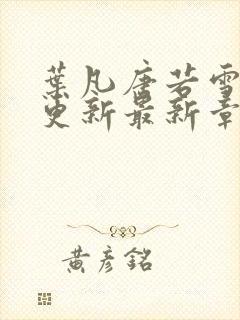 葉凡唐若雪
更新最新章
黃彥銘